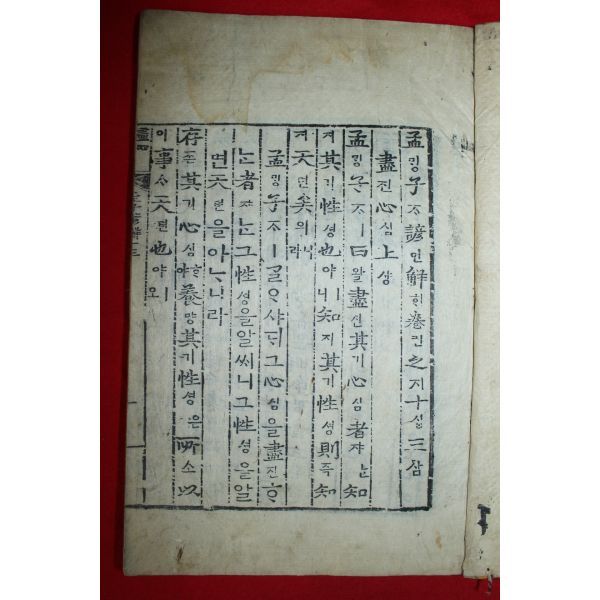 孟ᄆᆡᆼ子ᄌᆞ諺언解ᄒᆡ卷권之지十십三삼
盡진心심上샹
孟ᄆᆡᆼ子ᄌᆞㅣ曰왈盡진其기心심者쟈ᄂᆞᆫ知
지其기性셩也야ㅣ니知지其기性셩則즉知
지天텬矣의니라
孟ᄆᆡᆼ子ᄌᆞㅣᄀᆞᆯᄋᆞ샤ᄃᆡ그心심을盡진ᄒᆞ
ᄂᆞᆫ者쟈ᄂᆞᆫ그性셩을알ᄡᅵ니그性셩을알
면天텬을아ᄂᆞ니라
存존其기心심ᄒᆞ야養양其기性셩은所소以
이事ᄉᆞ天텬也야ㅣ오